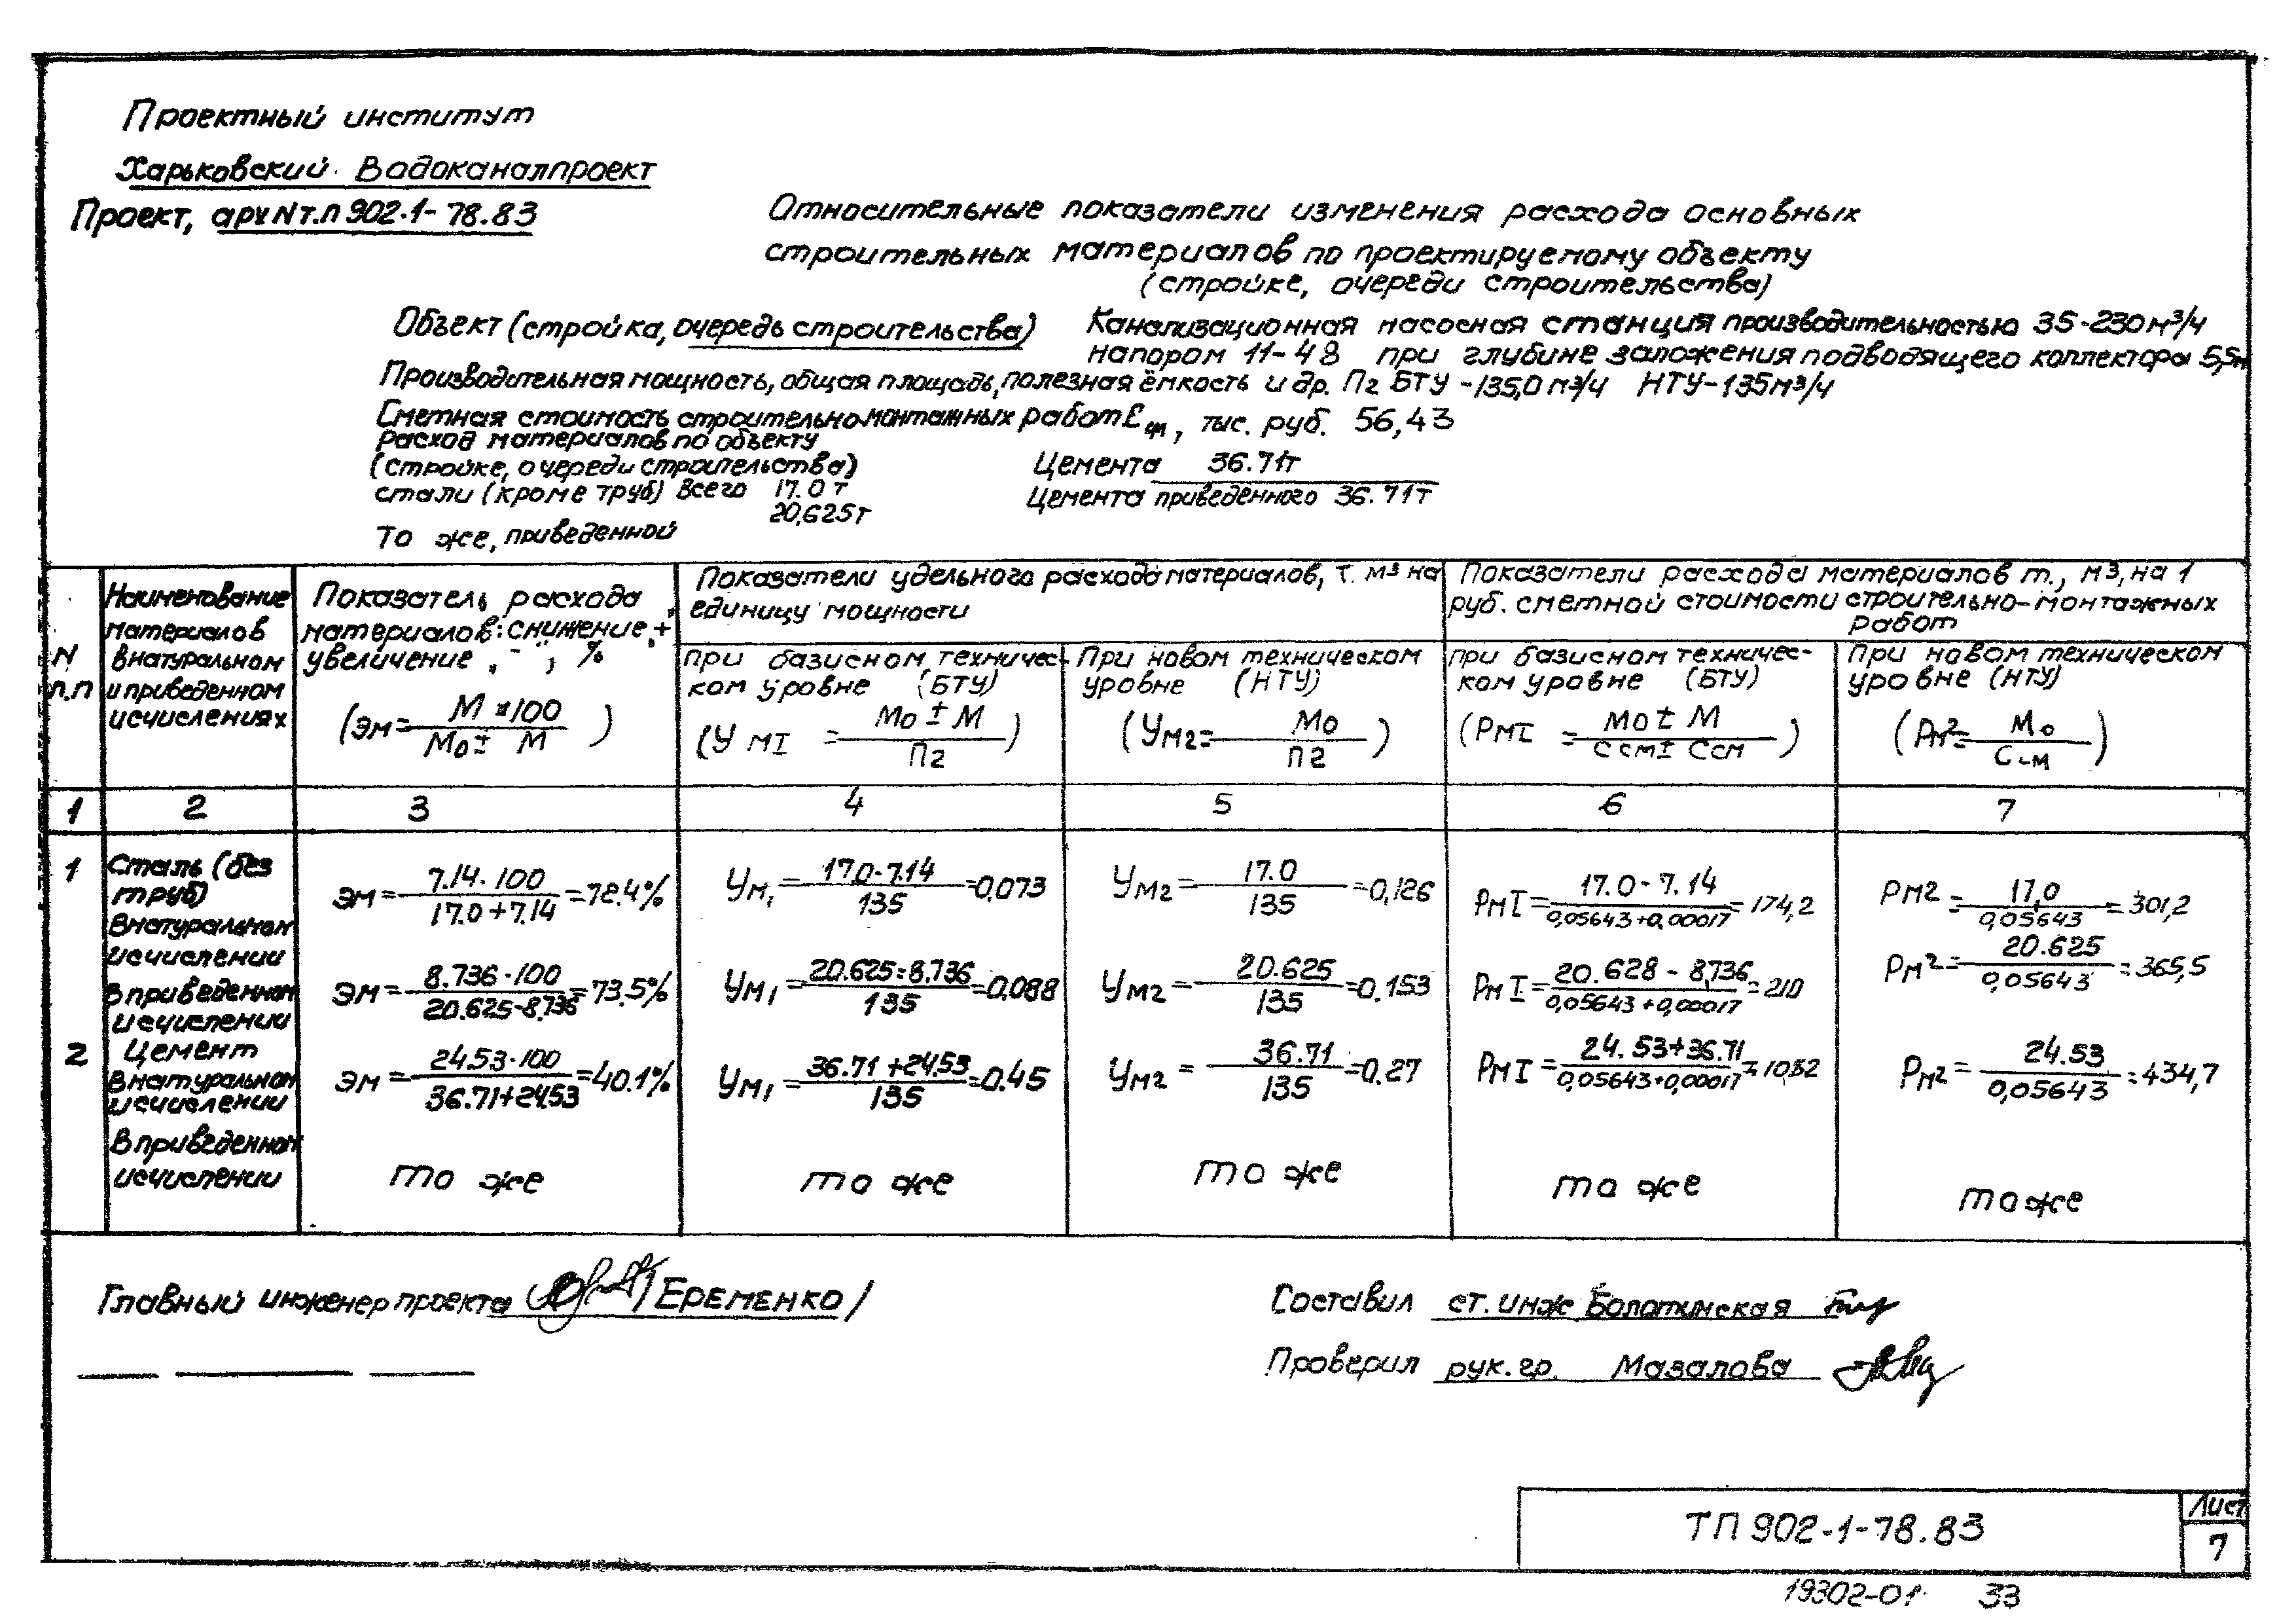 Проектный институт
Харьковский Водоканалпроект
Проект, арх N т.п 902.1-78.83
Относительные показатели изменения расхода основных
строительных материалов по проектируемому объекту
(стройке, очереди строительства)
Объект (стройка, очередь строительства) Канализационная насосная станция производительностью 35-230 м³/ч
напором 11-48 при глубине заложения подводящего коллектора 5,5м
Производительная мощность, общая площадь, полезная ёмкость и др. Пг БТУ -135,0 м³/ч НТУ-135м³/ч
Сметная стоимость строительно-монтажных работ См, тыс. руб. 56,43
Расход материалов по объекту
(стройке, очереди строительства) Цемента 36.71т
стали (кроме труб) всего 17.0 т Цемента приведенного 36.71т
20,625т
То же, приведенной
N п.п
Наименование
материалов
в натуральном
и приведенном
исчислениях
Показатель расхода
материалов: снижение „+"
увеличение „-", %
(Эм= М×100 / Мо± М)
Показатели удельного расхода материалов, т. м³ на
единицу мощности
при базисном техничес-
ком уровне (БТУ)
(У мI = Мо ± М / Пг)
При новом техническом
уровне (НТУ)
(Ум2= Мо / Пг)
Показатели расхода материалов т., м³, на 1
руб. сметной стоимости строительно-монтажных
работ
при базисном техничес-
ком уровне (БТУ)
(РмI = Мо ± М / Ссм± Ссм)
При новом техническом
уровне (НТУ)
(Рм2= Мо / Ссм)
1 2 3 4 5 6 7
1 Сталь (без
труб)
в натуральном
исчислении
Эм= 7.14·100 / 17.0+7.14 =72.4% Ум1= 17.0-7.14 / 135 =0,073 Ум2= 17.0 / 135 =0,126 РмI= 17.0-7.14 / 0,05643+0,00017 =174,2 Рм2= 17,0 / 0,05643 =301,2
В приведенном
исчислении
Эм= 8.736·100 / 20.625-8,736 =73.5% Ум1= 20.625-8,736 / 135 =0.088 Ум2= 20.625 / 135 =0.153 РмI= 20.628-8,736 / 0,05643+0,00017 =210 Рм2= 20.625 / 0,05643 =365,5
2 Цемент
в натуральном
исчислении
Эм= 24.53·100 / 36.71+24.53 =40.1% Ум1= 36.71+24.53 / 135 =0.45 Ум2= 36.71 / 135 =0.27 РмI= 24.53+36.71 / 0,05643+0,00017 =1082 Рм2= 24.53 / 0,05643 =434,7
В приведенном
исчислении
то же то же то же то же то же
Главный инженер проекта /Еременко/
Составил ст. инж Болотинская
Проверил рук. гр. Мазалова
ТП 902-1-78.83
Лист
7
19302-01 33